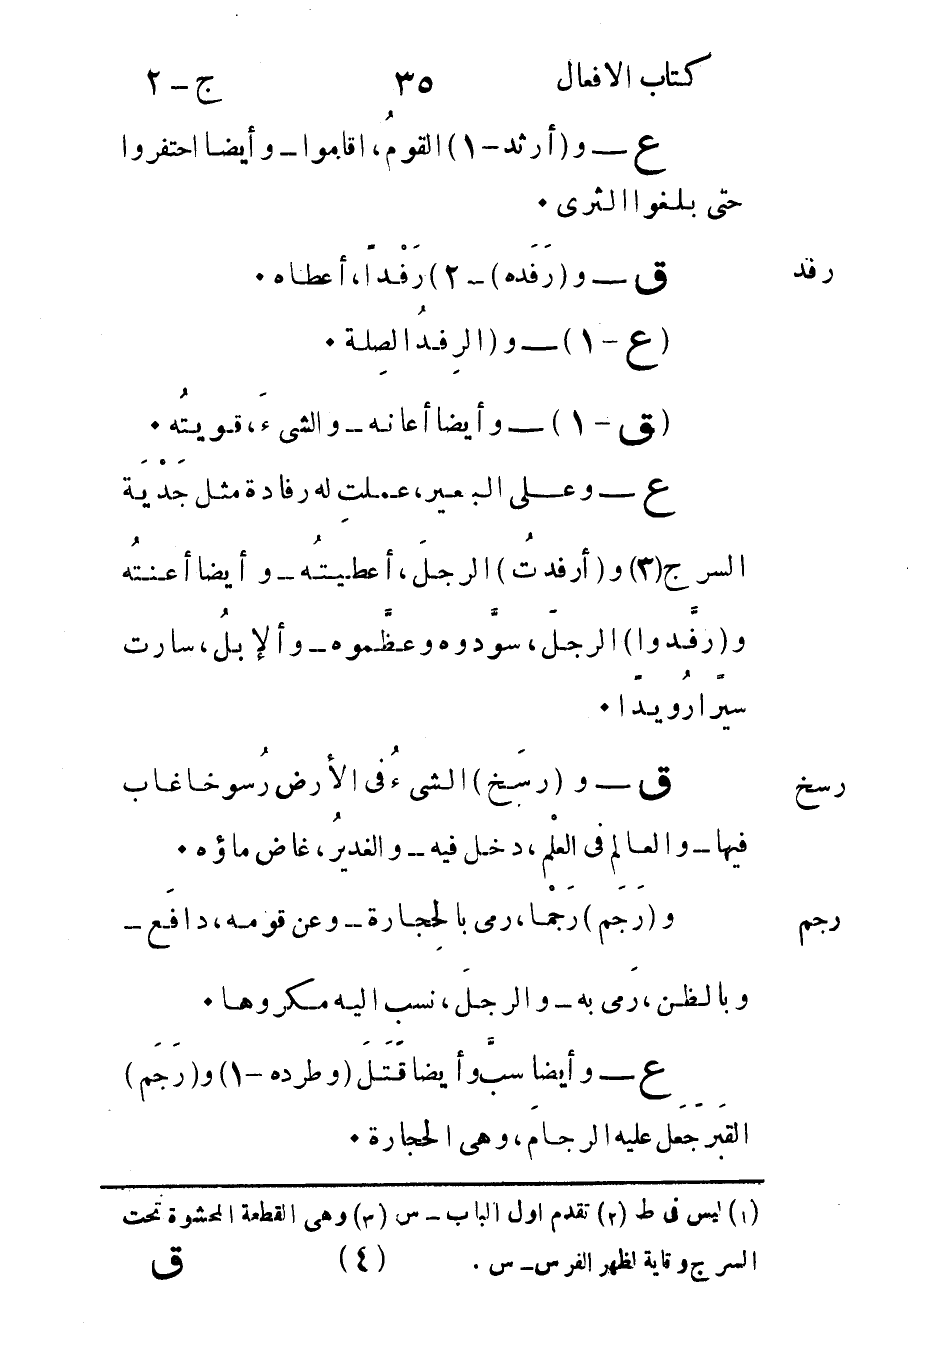 كتاب الافعال ٣٥ ج – ٢
ع — و (أرثد – ١) القومُ، اقاموا – و أيضا احتفروا
حتى بلغوا الثرى •
رفد ق — و (رَفَده) – ٢) رَفْداً، أعطاه •
(ع – ١) — و (الرِفدُ الصِلة •
(ق – ١) — و أيضا أعانه – و الشىءَ، قويتُه •
ع — و على البعير، عملتِ له رفادة مثل جَدْيَة
السرج (٣) و (أرفدتُ) الرجلَ، أعطيتُه – و أيضا أعنتُه
و (رفَّدوا) الرجلَ، سوَّدوه و عظَّموه – و ألإبلُ، سارت
سيرًا رُويدًا •
رسخ ق — و (رسَخ) الشىءُ فى الأرض رُسوخا غاب
فيها – و العالِم فى العلْم، دخل فيه – و الغديرُ، غاض ماؤه •
رجم و (رَجَم) رَجْما، رمى بالحِجارة – و عن قومه، دافَع –
و بالظن، رَمى به – و الرجلَ، نسب اليه مكروها •
ع — و أيضا سبَّ و أيضا قَتَلَ (و طرده – ١) و (رَجَم)
القبَرَ جَعل عليه الرجامَ، و هى الحجارة •
(١) ليس فى ط (٢) تقدم اول الباب – س (٣) و هى القطعة المحشوة تحت
السرج و قاية لظهر الفرس – س . (٤) ق